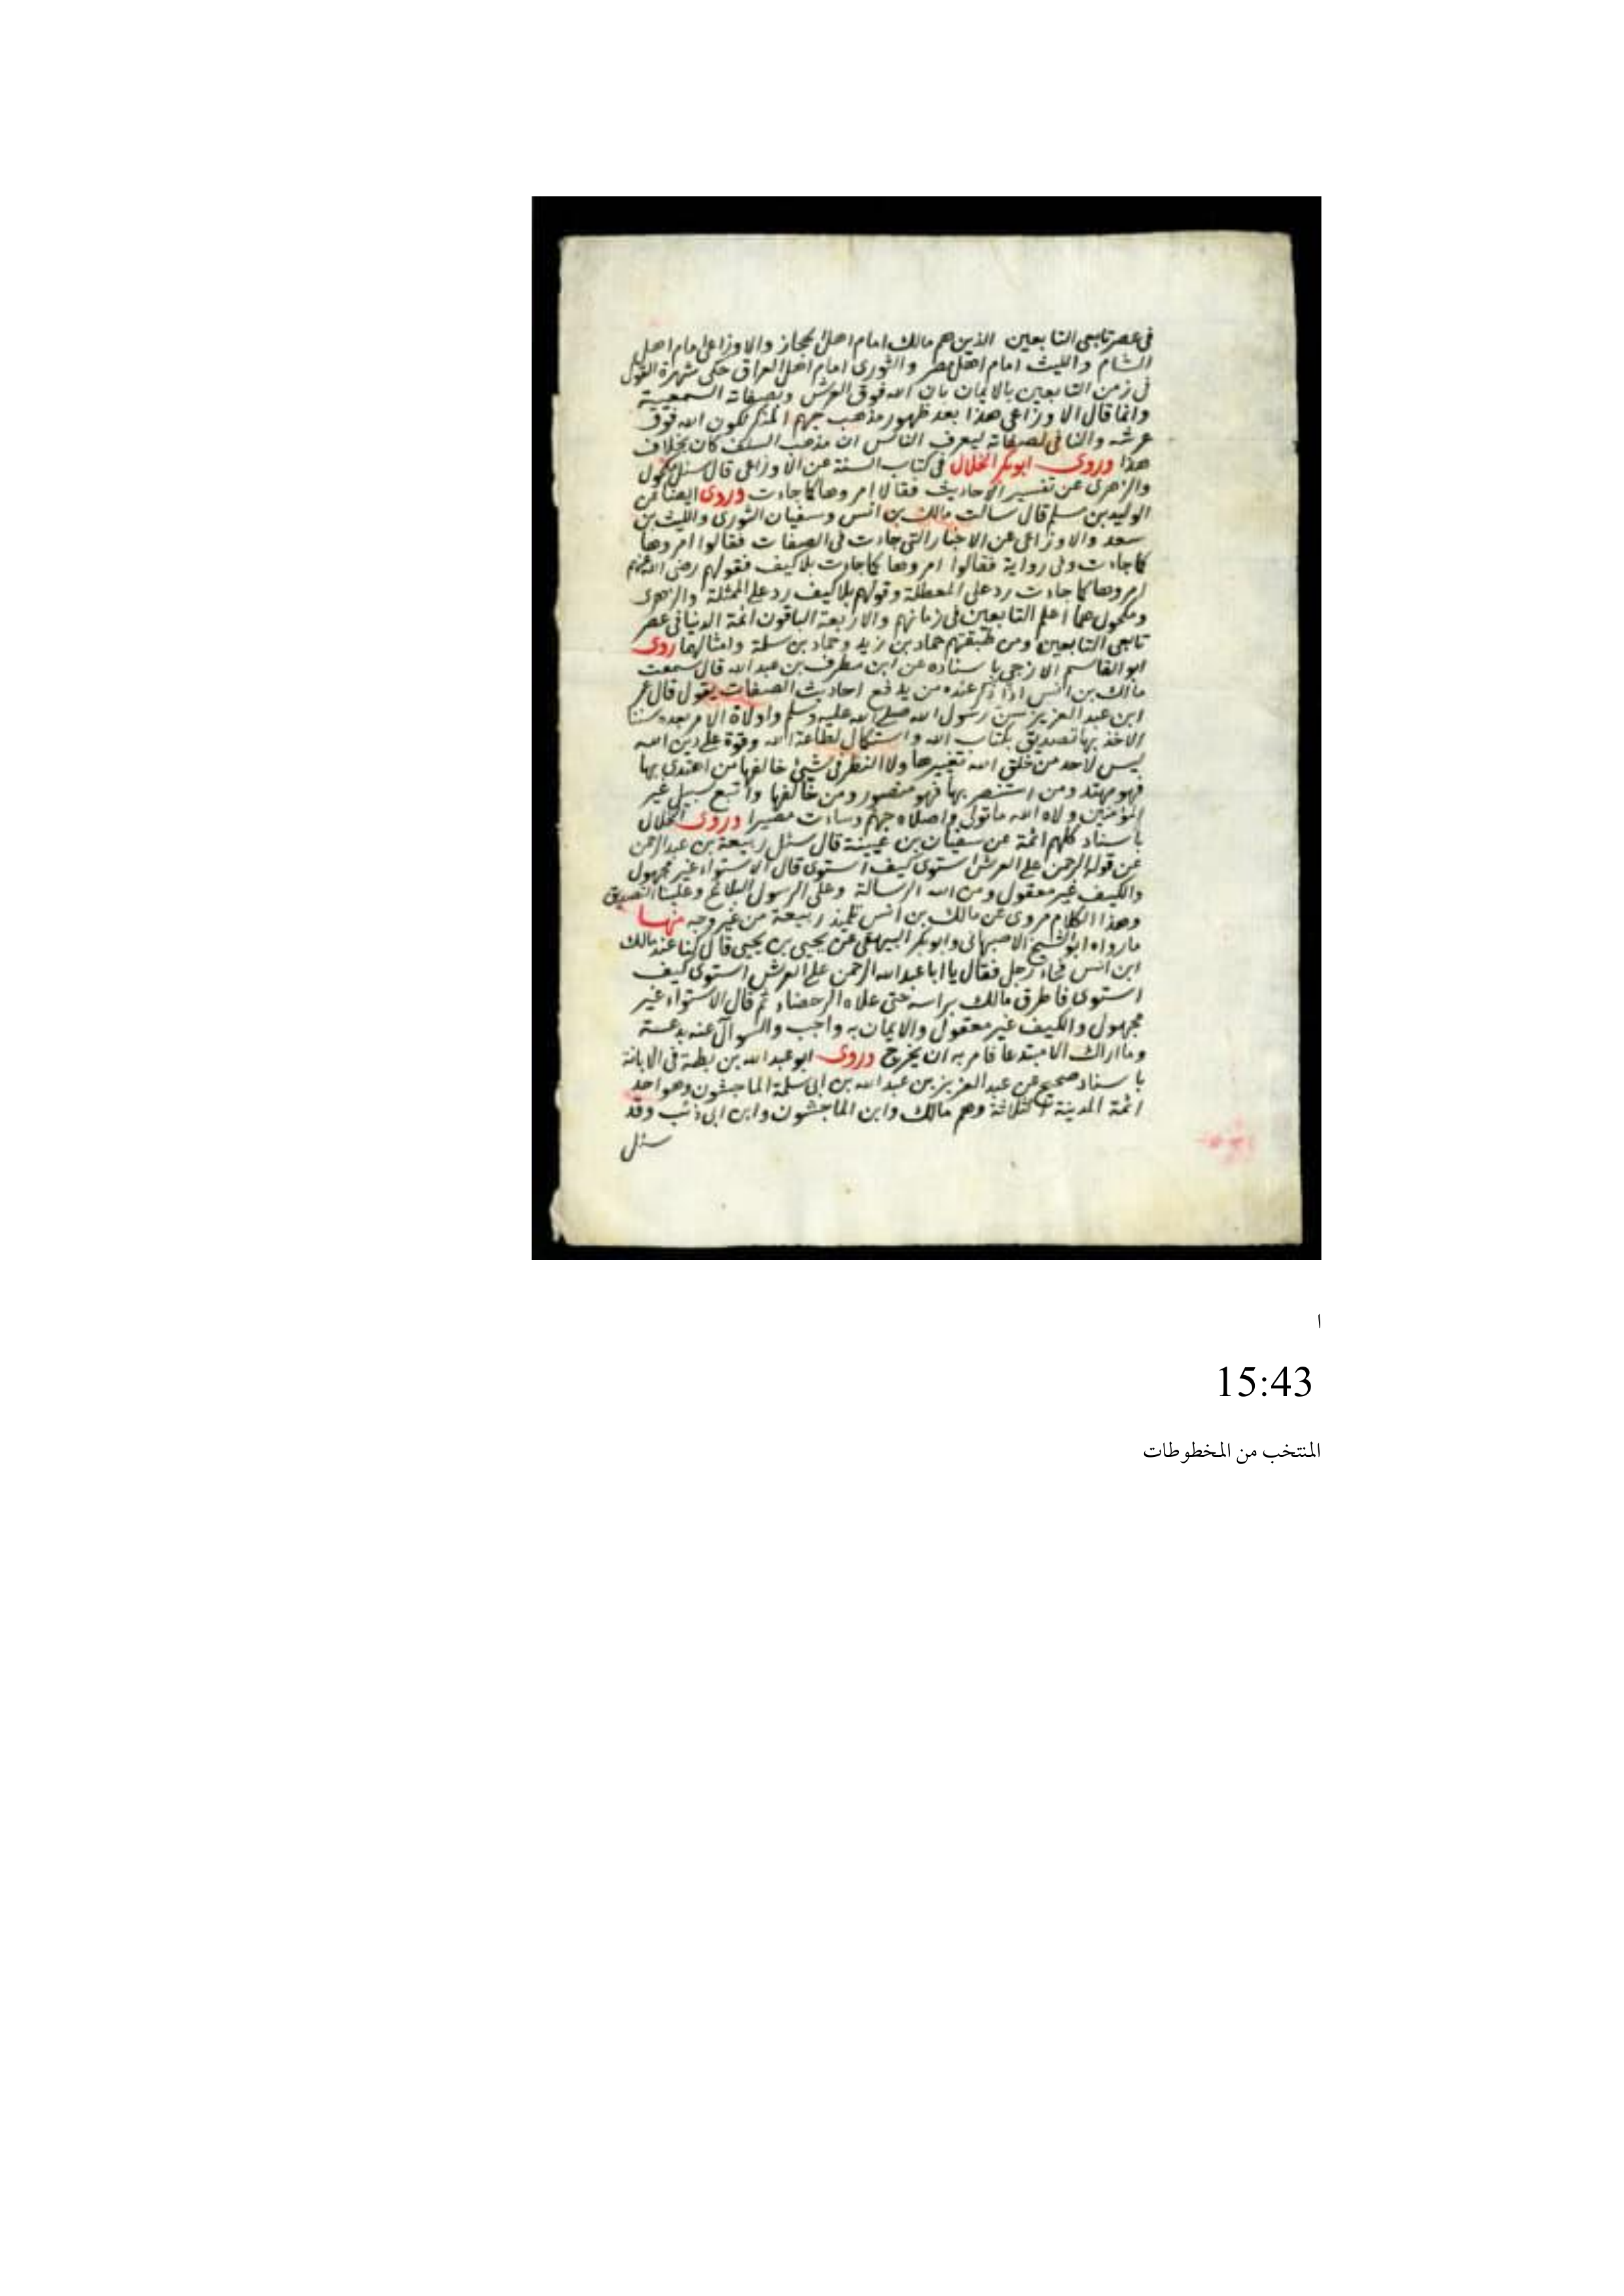 في عصر تابعي التابعين الذين هم مالك امام اهل الحجاز والاوزاعي امام اهل
الشام والليث امام اهل مصر والثوري امام اهل العراق حكى شهرة القول
في زمن التابعين بالايمان بان الله فوق العرش وبصفاته السمعية
وانما قال الاوزاعي هذا بعد ظهور مذهب جهم المنكر لكون الله فوق
عرشه والنافي لصفاته ليعرف الناس ان مذهب السلف كان بخلاف
هذا وروى ابو بكر الخلال في كتاب السنة عن الاوزاعي قال سئل مكحول
والزهري عن تفسير الاحاديث فقالا امروها كما جاءت وروى ايضا عن
الوليد بن مسلم قال سالت مالك بن انس وسفيان الثوري والليث بن
سعد والاوزاعي عن الاخبار التي جاءت في الصفات فقالوا امروها
كما جاءت وفي رواية فقالوا امروها كما جاءت بلا كيف فقولهم رضي الله عنهم
امروها كما جاءت رد على المعطلة وقولهم بلا كيف رد على الممثلة والزهري
ومكحول هما اعلم التابعين في زمانهم والاربعة الباقون ائمة الدنيا في عصر
تابعي التابعين ومن طبقتهم حماد بن زيد وحماد بن سلمة وامثالهما روى
ابو القاسم الازجي باسناده عن ابن مطرف بن عبد الله قال سمعت
مالك بن انس اذا ذكر عنده من يدفع احاديث الصفات يقول قال عمر
ابن عبد العزيز سن رسول الله صلى الله عليه وسلم وولاة الامر بعده سننا
الاخذ بها تصديق بكتاب الله واستكمال لطاعة الله وقوة على دين الله
ليس لاحد من خلق الله تغييرها ولا النظر في شيئ خالفها من اهتدى بها
فهو مهتد ومن استنصر بها فهو منصور ومن خالفها واتبع سبيل غير
المؤمنين ولاه الله ما تولى واصلاه جهنم وساءت مصيرا وروى الخلال
باسناد كلهم ائمة عن سفيان بن عيينة قال سئل ربيعة بن عبد الرحمن
عن قوله الرحمن على العرش استوى كيف استوى قال الاستواء غير مجهول
والكيف غير معقول ومن الله الرسالة وعلى الرسول البلاغ وعلينا التصديق
وهذا الكلام مروي عن مالك بن انس تلميذ ربيعة من غير وجه منها
ما رواه ابو الشيخ الاصبهاني وابو بكر البيهقي عن يحيى بن يحيى قال كنا عند مالك
ابن انس فجاء رجل فقال يا ابا عبد الله الرحمن على العرش استوى كيف
استوى فاطرق مالك براسه حتى علاه الرحضاء ثم قال الاستواء غير
مجهول والكيف غير معقول والايمان به واجب والسوال عنه بدعة
وما اراك الا مبتدعا فامر به ان يخرج وروى ابو عبد الله بن بطة في الابانة
باسناد صحيح عن عبد العزيز بن عبد الله بن ابي سلمة الماجشون وهو احد
ائمة المدينة الثلاثة وهم مالك وابن الماجشون وابن ابي ذئب وقد
سئل
ا
15:43
المنتخب من المخطوطات